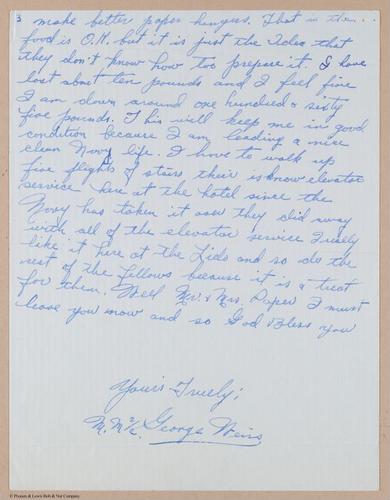 3 make better paper hangers. That is the
food is O.K. but it is just the idea that
they don't know how too prepare it. I have
lost about ten pounds and I feel fine
I am down around one hundred & sixty
five pounds. This will keep me in good
condition because I am leading a nice
clean Navy life. I have to walk up
five flights of stairs their is know elevator
service here at the hotel since the
Navy has taken it over they did away
with all of the elevator service I really
like it here at the Lido and so do the
rest of the fellows because it is a treat
for them. Well Mr. & Mrs. Paper I must
leave you know and so God Bless you
Yours Truely;
M.M 2/c. George Weiss
© Pheoum & Lewis Bolt & Nut Company